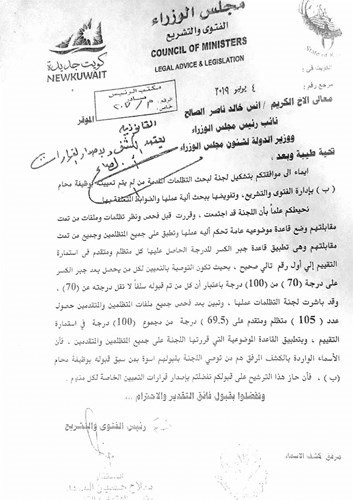 مجلس الوزراء
الفتوى والتشريع
COUNCIL OF MINISTERS
LEGAL ADVICE & LEGISLATION
كويت جديدة
NEWKUWAIT
الكويت في :
مرجع رقم :
٤ يوليو ٢٠١٩
مكتب الرئيس
معالي الاخ الكريم / انس خالد ناصر الصالح
الموقر
نائب رئيس مجلس الوزراء
ووزير الدولة لشئون مجلس الوزراء
تحية طيبة وبعد ،
ايماء الى موافقتكم بتشكيل لجنة لبحث التظلمات المقدمة من لم يتم تعيينه بوظيفة محام
(ب) بإدارة الفتوى والتشريع، وتفويضها ببحث آلية عملها والضوابط المتعلقة بها
نحيطكم علماً بأن اللجنة قد اجتمعت ، وقررت قبل فحص ونظر تظلمات وملفات من تمت
مقابلتهم وضع قاعدة موضوعيه عامة تحكم آليه عملها وتطبق على جميع المتظلمين وجميع من تمت
مقابلتهم وهى تطبيق قاعدة جبر الكسر للدرجة الحاصل عليها كل متظلم ومتقدم في استمارة
التقييم إلي أول رقم تالي صحيح ، بحيث تكون التوصية بالتعيين لكل من يحصل بعد جبر الكسر
على درجة (70) من (100) درجة باعتبار أن كل من تم قبوله سلفاً لا تقل درجته عن (70) .
وقد باشرت لجنة التظلمات عملها ، وتبين بعد فحص جميع ملفات المتظلمين والمتقدمين حصول
عدد (105) متظلم ومتقدم على (69.5) درجة من مجموع (100) درجة في استمارة
التقييم ، وبتطبيق القاعدة الموضوعية التي قررتها اللجنة على جميع المتظلمين والمتقدمين ، فأن
الأسماء الواردة بالكشف المرفق هم من توصي اللجنة بقبولهم اسوة بمن سبق قبوله بوظيفة محام
(ب) ، فأن حاز هذا الترشيح على قبولكم تفضلتم بإصدار قرارات التعيين الخاصة لكل منهم .
وتفضلوا بقبول فائق التقدير والاحترام ،،،
رئيس الفتوى والتشريع
المستشار
مرفق كشف الاسماء